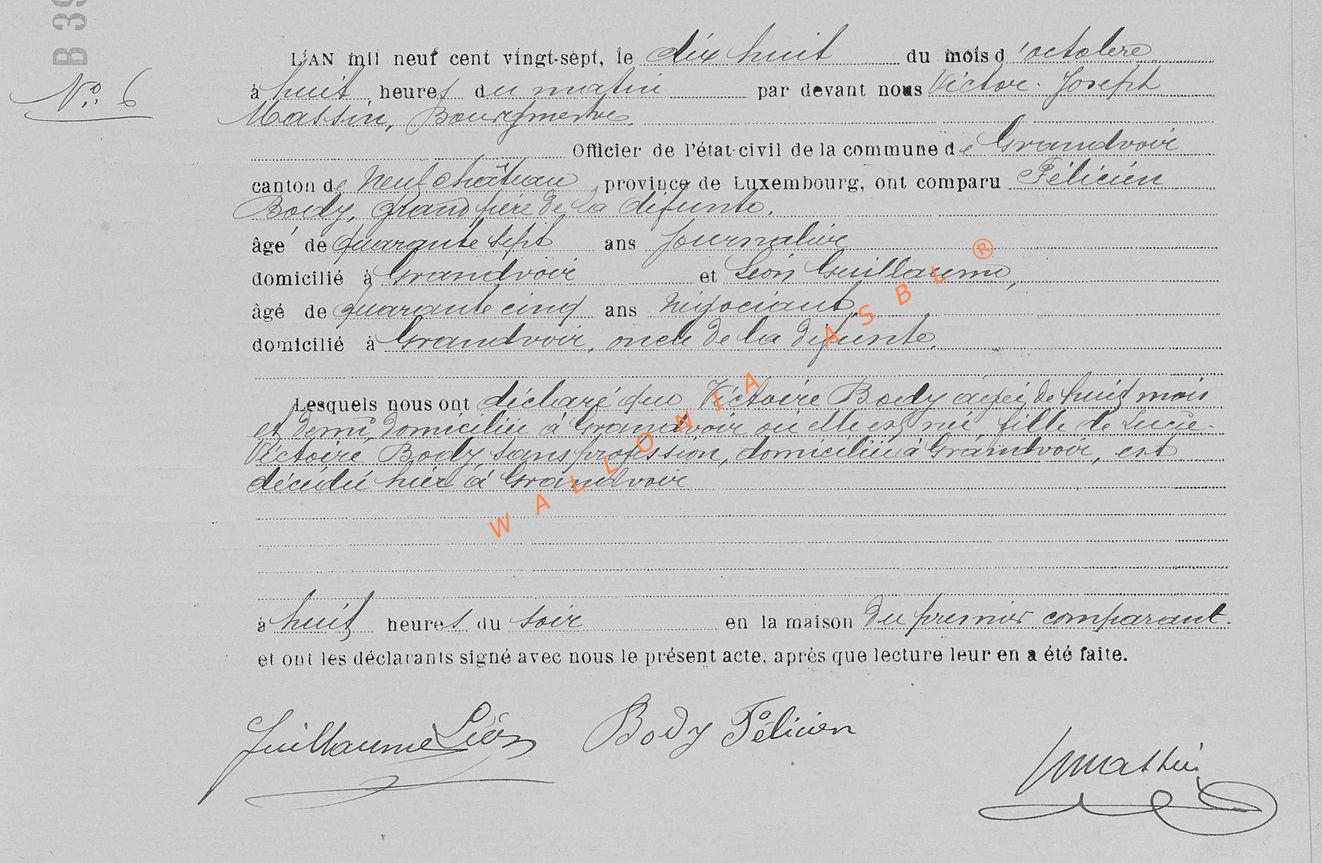 B 39
N° 6
L'AN mil neuf cent vingt-sept, le dix huit du mois d'octobre
à huit heures du matin par devant nous Victor Joseph
Massin, Bourgmestre
Officier de l'état-civil de la commune de Grandvoir
canton de Neufchâteau province de Luxembourg, ont comparu Félicien
Body, Grand père de la défunte,
âgé de quarante sept ans journalier
domicilié à Grandvoir et Léon Guillaume,
âgé de quarante cinq ans négociant,
domicilié à Grandvoir, oncle de la défunte,
Lesquels nous ont déclaré que Victoire Body agée de huit mois
et demi, domiciliée à Grandvoir ou elle est née fille de Lucie-
Victoire Body, sans profession, domiciliée à Grandvoir, est
décédée hier à Grandvoir
à huit heures du soir en la maison du premier comparant.
et ont les déclarants signé avec nous le présent acte, après que lecture leur en a été faite.
Guillaume Léon Body Félicien
VMassin
WALLONIA ASBL ®